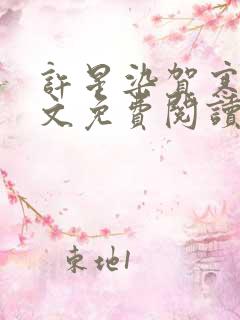 許星染賀寒
文免費閱讀
東地1